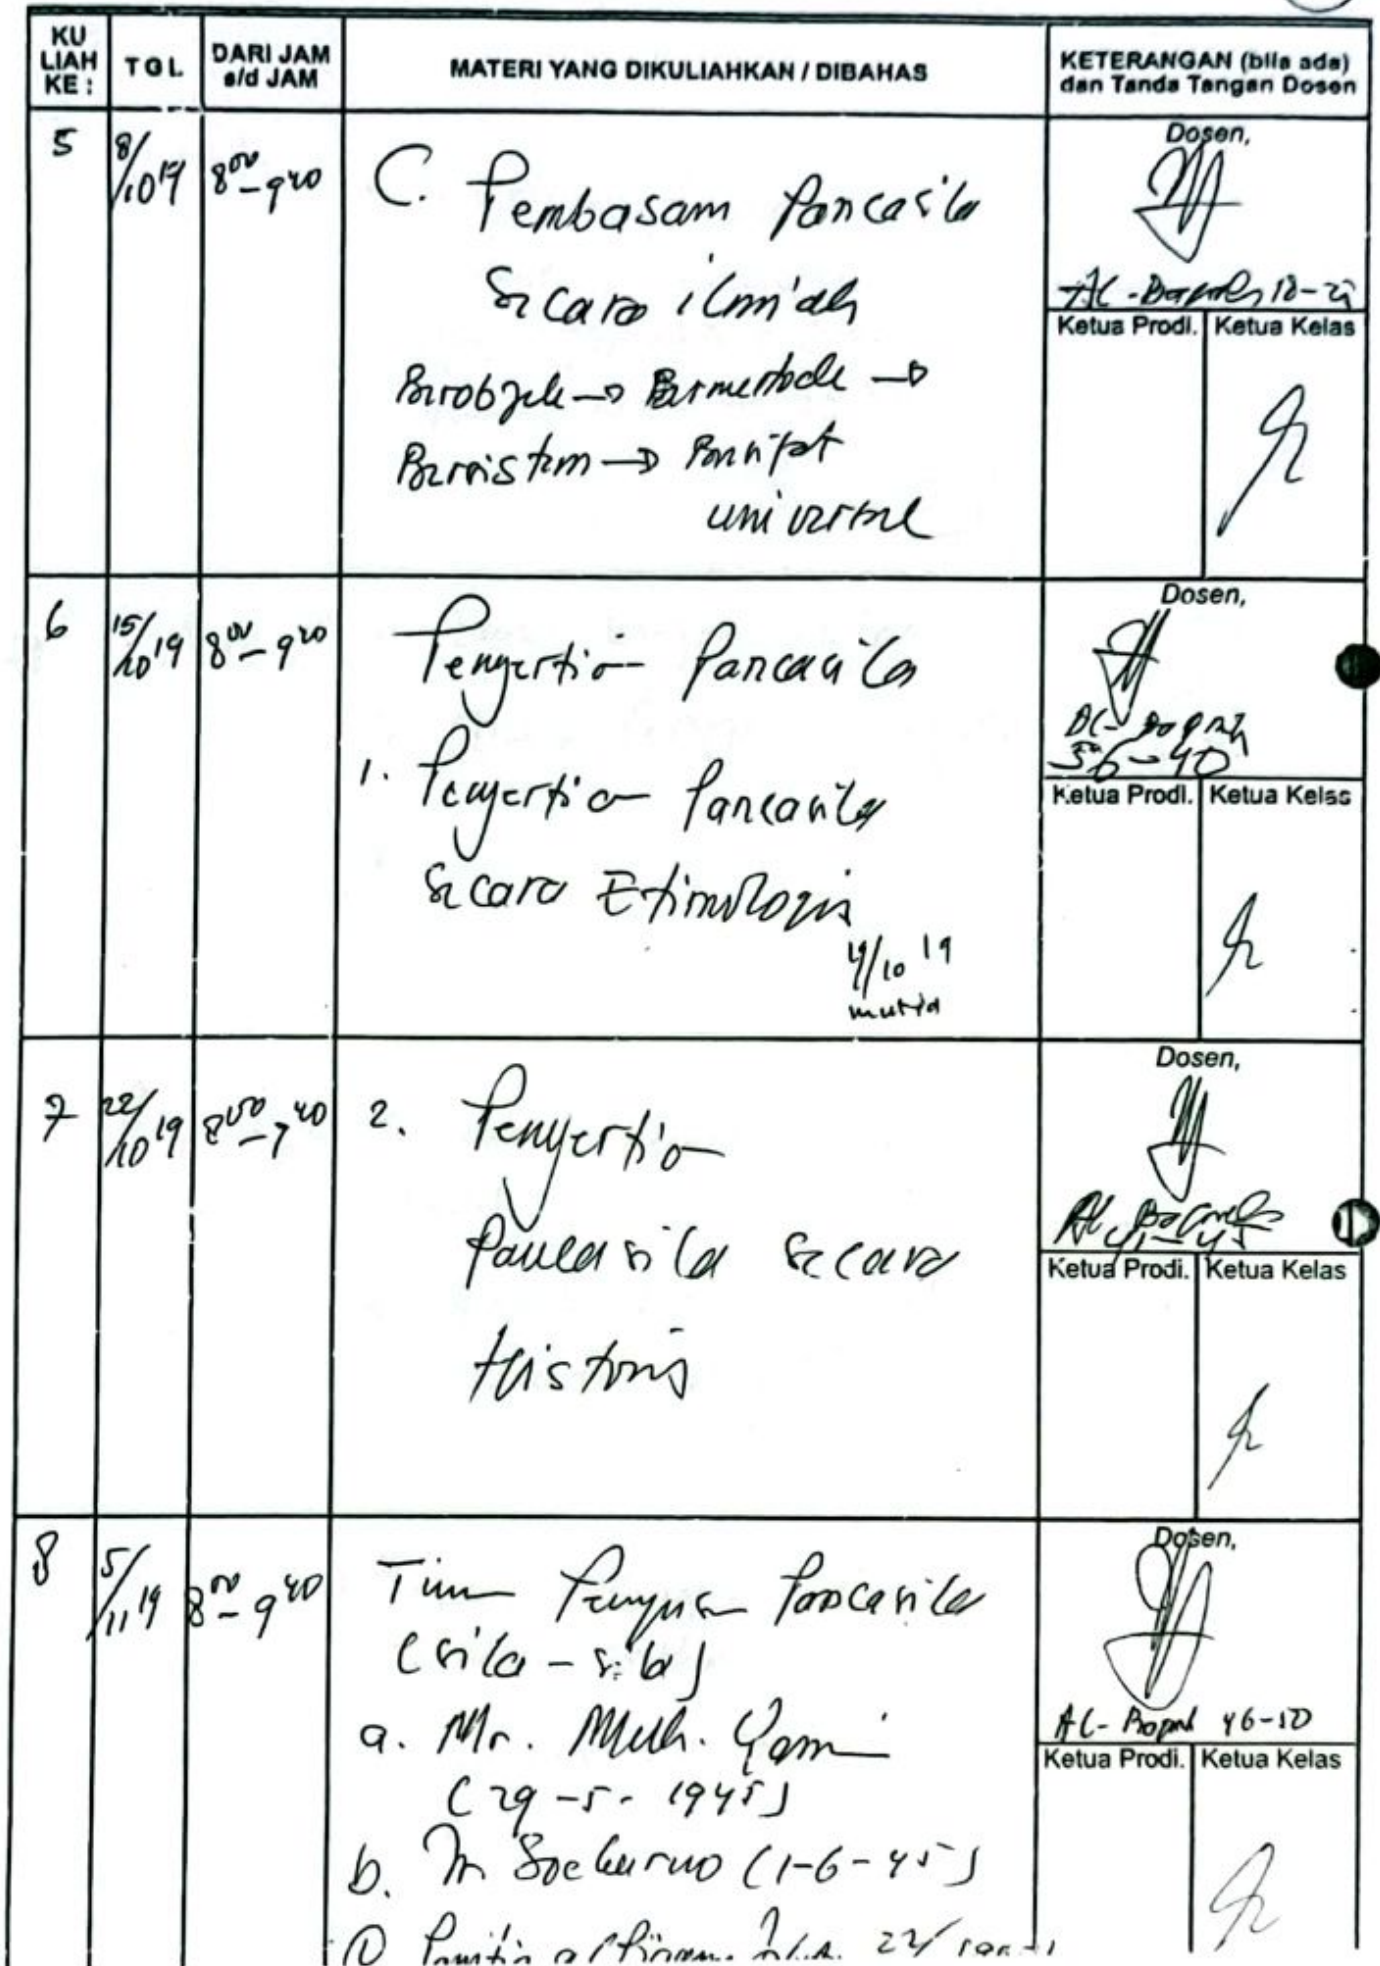 KU LIAH KE :
TGL
DARI JAM s/d JAM
MATERI YANG DIKULIAHKAN / DIBAHAS
KETERANGAN (bila ada) dan Tanda Tangan Dosen
5
8/10 19
8 00 - 9 40
C. Pembasam Pancasila
Secara ilmiah
Berobjek → Bermetode →
Bersistem → Bersifat
universal
Dosen,
Ketua Prodi.
Ketua Kelas
6
15/10 19
8 00 - 9 40
Pengertian Pancasila
1. Pengertian Pancasila
Secara Etimologis
19
Dosen,
36-40
Ketua Prodi.
Ketua Kelas
7
22/10 19
8 00 - 9 40
2. Pengertian
Pancasila Secara
Historis
Dosen,
41-45
Ketua Prodi.
Ketua Kelas
8
5/11 19
8 00 - 9 40
Tim Pancasila
(sila-sila)
a. Mr. Muh. Yamin
(29-5-1945)
b. Ir Soekarno (1-6-45)
Dosen,
46-50
Ketua Prodi.
Ketua Kelas
22/